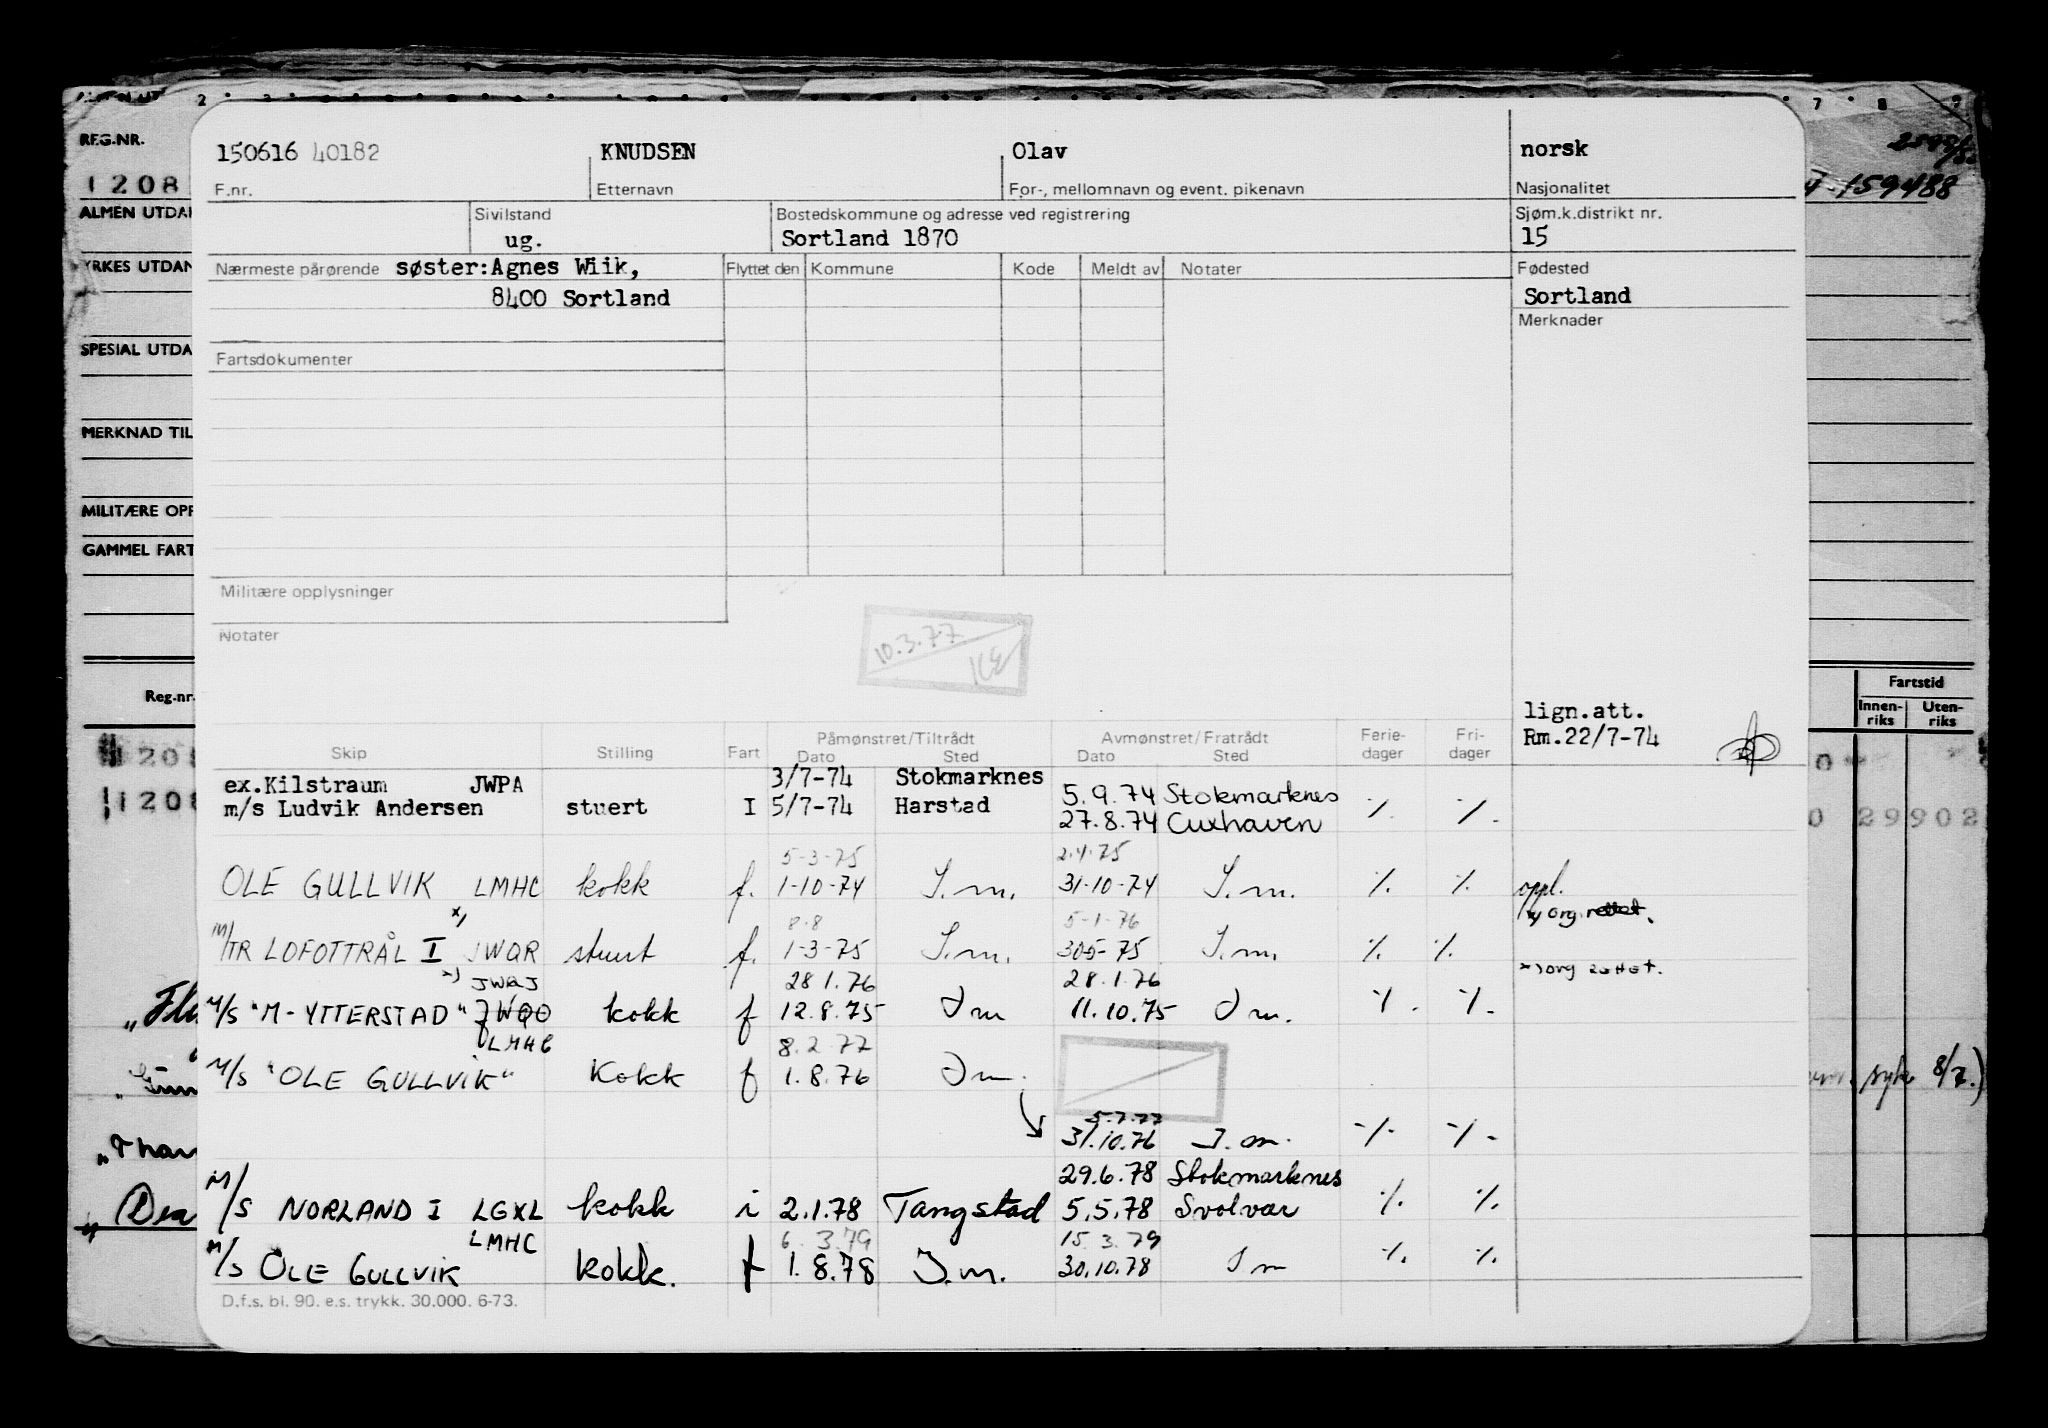 REG.NR.
1208
ALMEN UTDA
YRKES UTDAN
SPESIAL UTDA
MERKNAD TIL
MILITÆRE OPP
GAMMEL FART
Reg-nr.
1208
1208
150616 40182 KNUDSEN Olav norsk
F.nr. Etternavn For-, mellomnavn og event. pikenavn Nasjonalitet
Sivilstand Bostedskommune og adresse ved registrering Sjøm.k.distrikt nr.
ug. Sortland 1870 15
Nærmeste pårørende søster:Agnes Wiik, Flyttet den Kommune Kode Meldt av Notater Fødested
8400 Sortland Sortland
Merknader
Fartsdokumenter
Militære opplysninger
Notater
10.3.77
KE
lign.att.
Rm.22/7-74
Skip Stilling Fart Påmønstret/Tiltrådt Avmønstret/Fratrådt Ferie- Fri-
Dato Sted Dato Sted dager dager
ex.Kilstraum JWPA 3/7-74 Stokmarknes 5.9.74 Stokmarknes
m/s Ludvik Andersen stuert I 5/7-74 Harstad 27.8.74 Cuxhaven ٪ ٪.
5-3-75 2.4.75
OLE GULLVIK LMHC kokk f. 1-10-74 I.m. 31-10-74 I.m. ٪ ٪ oppl.
x) 8.8 5-1-76 x) org. rettet.
M/TR LOFOTTRÅL I JWQR stuert f. 1-3-75 I.m. 305-75 I.m. ٪ ٪
x) JWQJ 28 1.76 28.1.76 x) org rettet.
M/S "M-YTTERSTAD" JWQO kokk f 12.8.75 I m 11.10.75 I m. ٪. ٪.
LMHC 8.2 77
M/S "OLE GULLVIK" Kokk f 1.8.76 I m.
5.7.77
31.10.76 I.m. ٪ ٪
29.6.78 Stokmarknes
M/S NORLAND I LGXL kokk i 2.1.78 Tangstad 5.5.78 Svolvær ٪ ٪
LMHC 6. 3.79 15. 3. 79
M/S OLE GULLVIK kokk. f 1.8.78 I.m. 30.10.78 I m ٪ ٪
D.f.s. bl. 90. e.s. trykk. 30.000. 6-73.
159488
Fartstid
Innen-riks Uten-riks
0
0 29902
syk 8/7.)